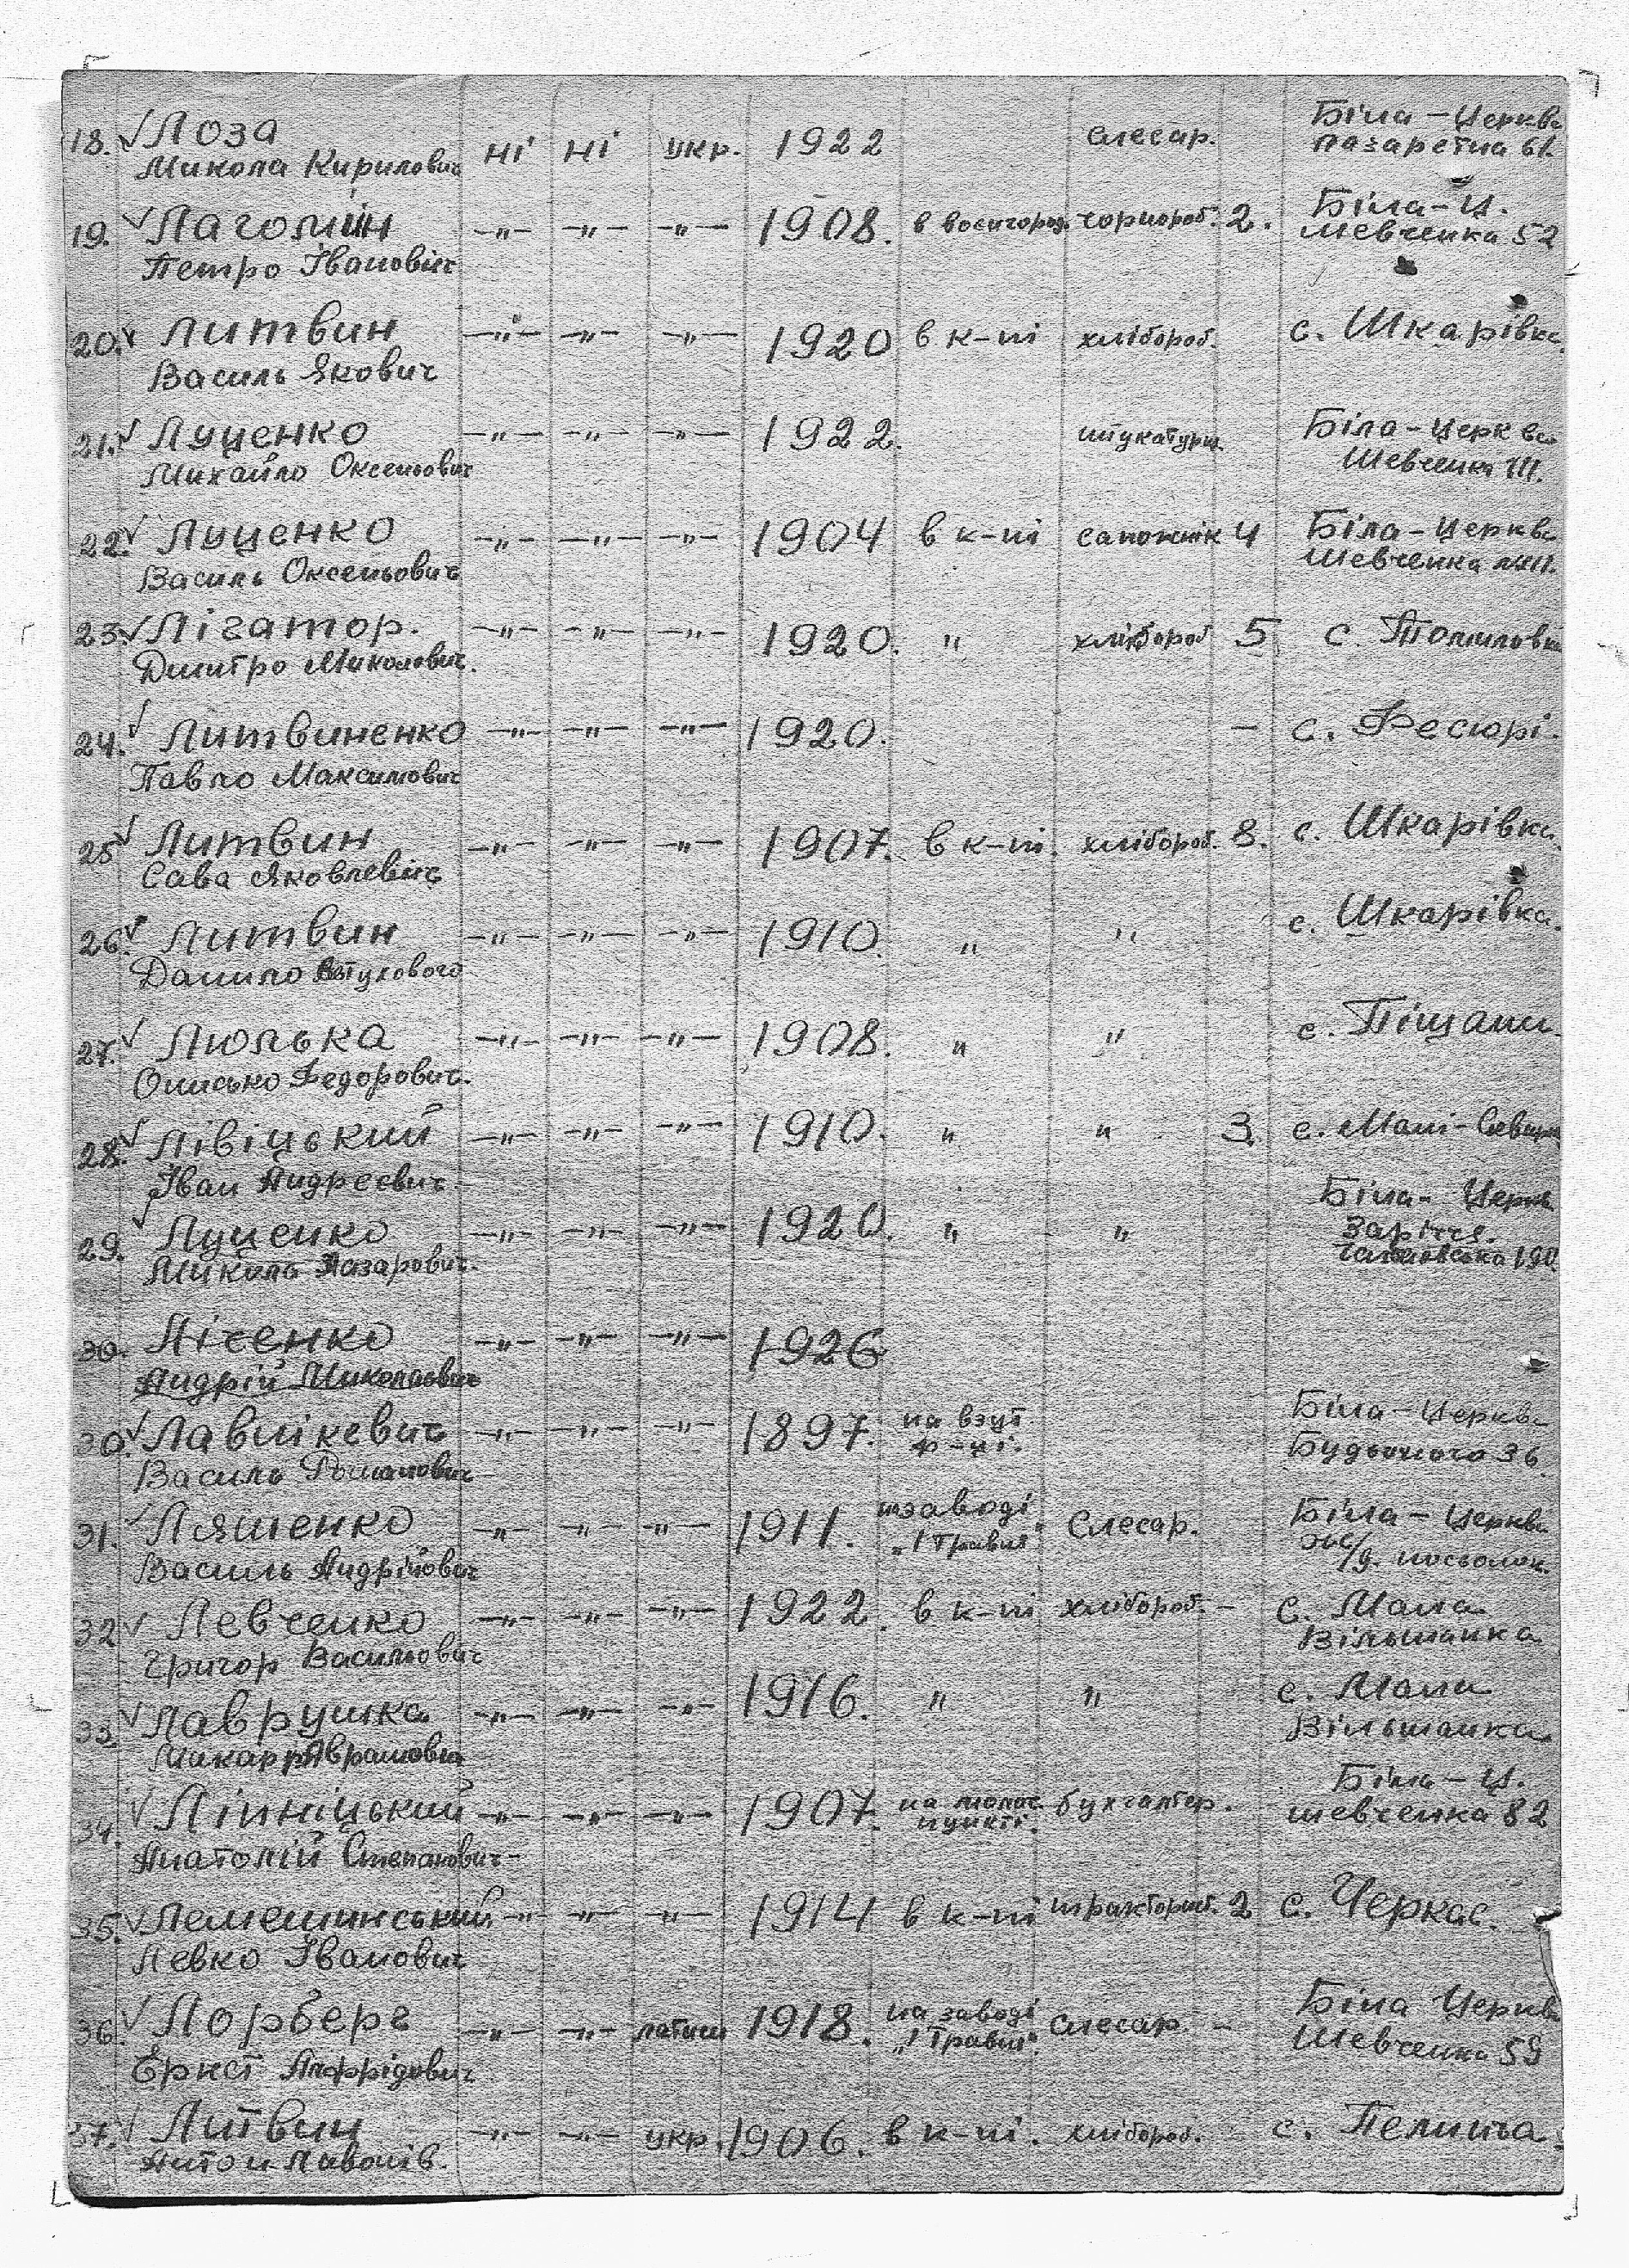 18. ✓ Лоза ні ні укр. 1922 слесар. Біла-Церква
Микола Кирилович лазаретна 61.
19. ✓ Лагомін —"— —"— —"— 1908. чорнороб. 2. Біла-Ц.
Петро Івановіч Шевченка 52
20. ✓ Литвин —"— —"— —"— 1920 в к-пі хлібороб. с. Шкарівка
Василь Якович
21. ✓ Луценко —"— —"— —"— 1922. штукатурщ. Біла-Церква
Михайло Оксеньович Шевченка 111.
22. ✓ Луценко —"— —"— —"— 1904 в к-пі сапожнік 4 Біла-Церква
Василь Оксеньович Шевченка №111.
23. ✓ Лігатор. —"— —"— —"— 1920. " хлібороб 5 с. Томиловка
Дмитро Миколович.
24. ✓ Литвиненко —"— —"— —"— 1920. — с. Фесюрі.
Павло Максимович
25 ✓ Литвин —"— —"— —"— 1907. в к-пі. хлібороб. 8. с. Шкарівка
Сава Яковлевіч
26. ✓ Литвин —"— —"— —"— 1910. " " с. Шкарівка.
Данило
27. ✓ Люлька —"— —"— —"— 1908. " " с. Піщани
Онисько Федорович.
28. ✓ Лівіцький —"— —"— —"— 1910. " " 3. с. Малі-
Іван Андреєвич.
29. ✓ Луценко —"— —"— —"— 1920. " " Біла-Церкв
Микола Назарович. Заріччя.
190
30. Лісенко —"— —"— —"— 1926
Андрій Миколаович
30. ✓ Лавлікевич —"— —"— —"— 1897. на взут. Біла-Церква
Василь Романович ф-ці. Будьоного 36.
31. ✓ Ляшенко —"— —"— —"— 1911. заводі Слесар. Біла-Церква
Василь Андрійович „1 Травня" Ж/д. посьолок.
32 ✓ Левченко —"— —"— —"— 1922. в к-пі хлібороб. — с. Мала
Григор Васильович Вільшанка
33. ✓ Лаврушка —"— —"— —"— 1916. " " с. Мала
Макар Аврамович Вільшанка
34. ✓ Ліпніцький —"— —"— —"— 1907. на молоч. бухгалтер. Біла-Ц.
Анатолій Степанович пункті. Шевченка 82
35. ✓ Лемешинський —"— —"— —"— 1914 в к-пі тракторист. 2 с. Черкас.
Левко Іванович
36. ✓ Лорберг —"— —"— латиш 1918. на заводі Слесар. — Біла Церква
Ернст Альфрідович „1 Травня". Шевченка 59
37. ✓ Литвин —"— —"— укр. 1906. в к-пі. хлібороб. с. Пелипча.
Антон Паволів.